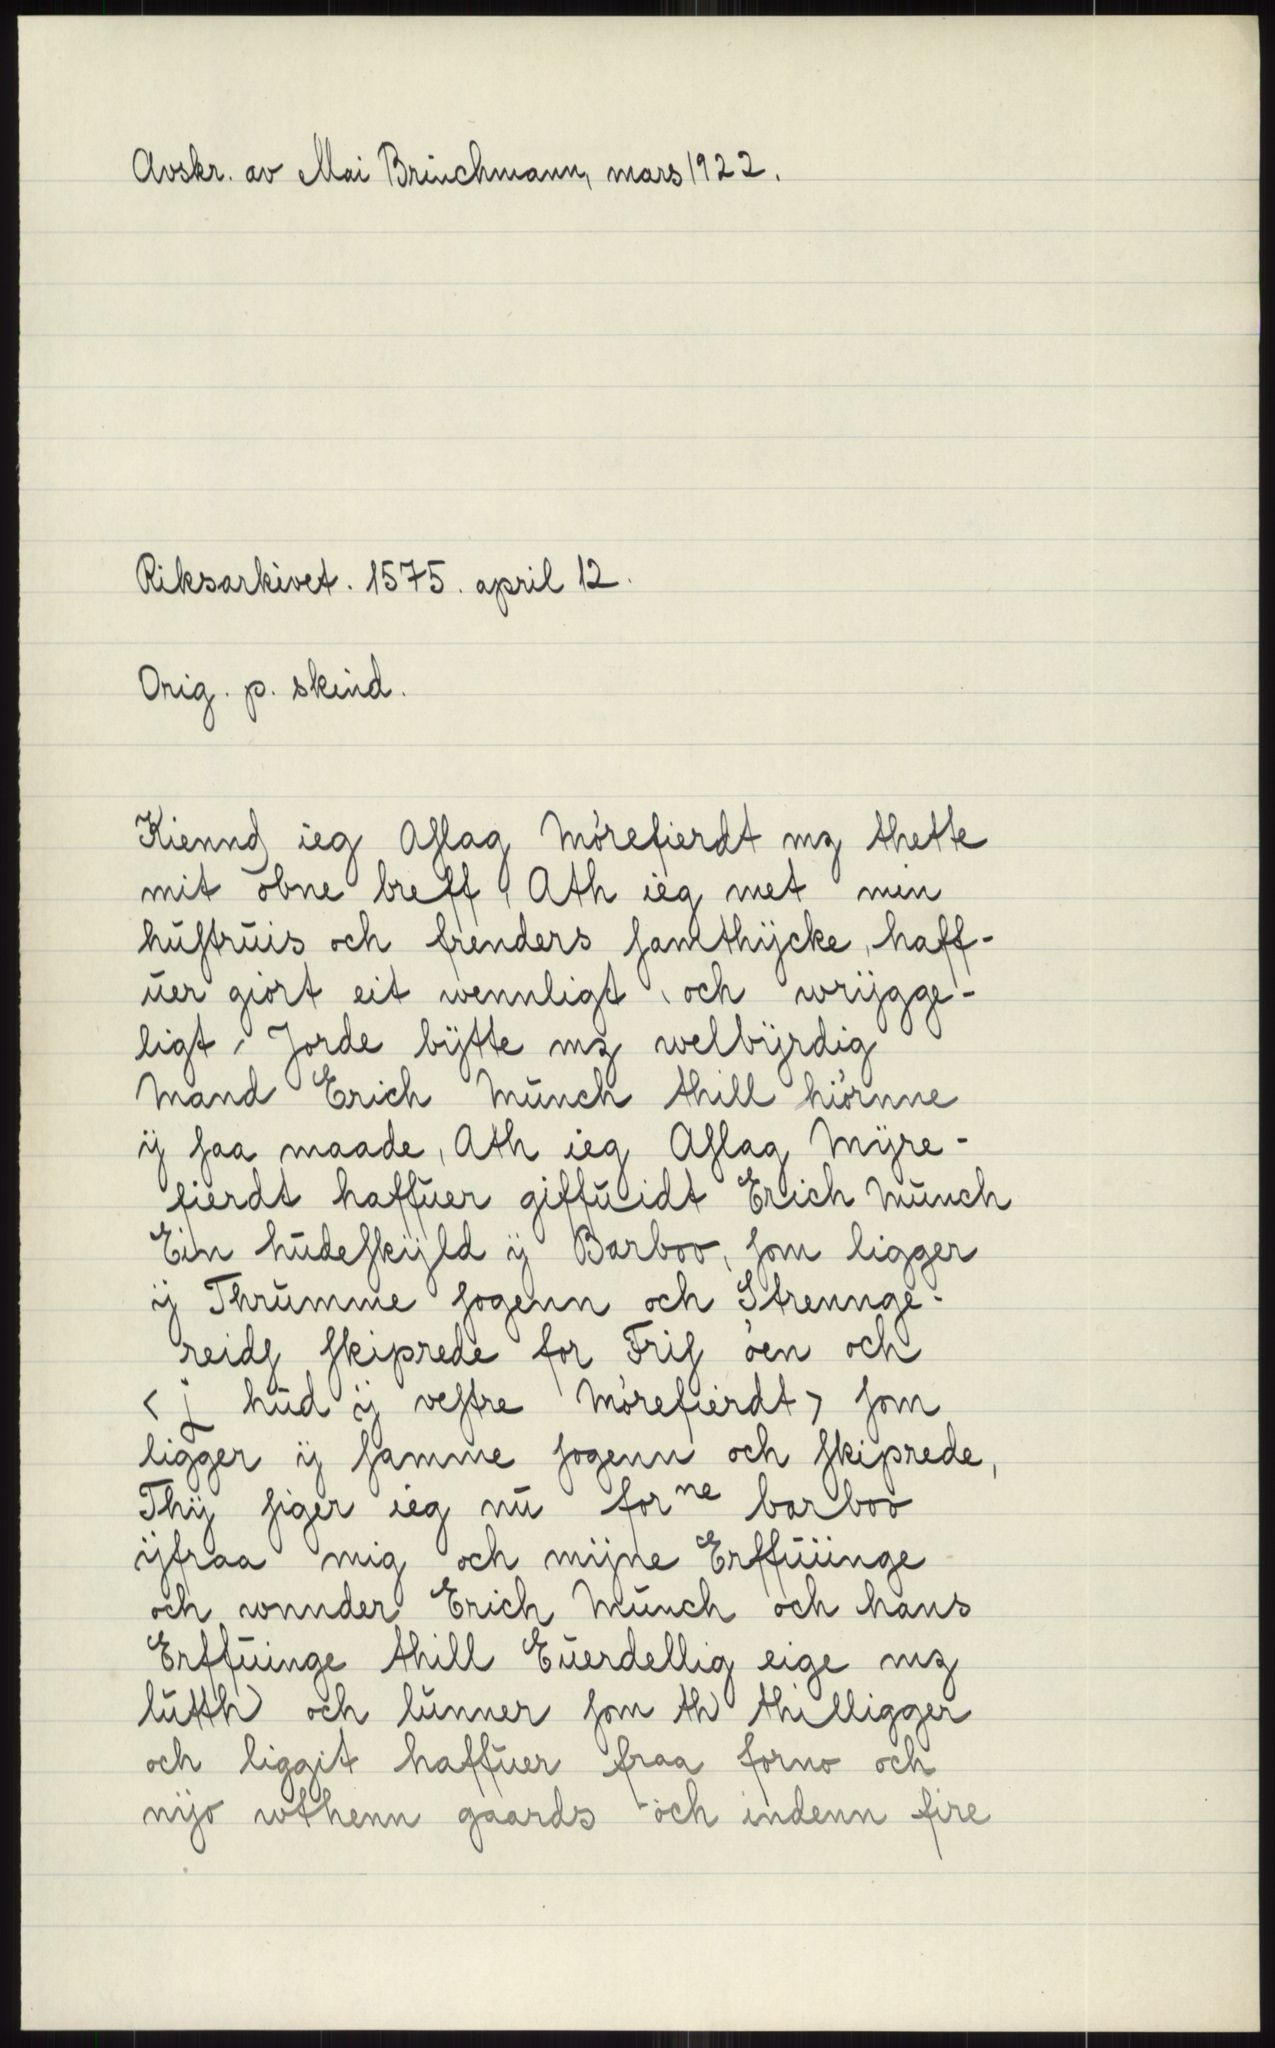 Avskr. av Mai Brinchmann, mars 1922.
Riksarkivet. 1575. april 12.
Orig. p. skind.
Kiennd ieg Aslag Mórefierdt mz thette
mit óbne breff, Ath ieg met min
hustruis och frenders samthÿcke, haff-
uer giort eit wennligt, och wrÿgge-
ligt, Jorde bÿtte mz welbÿrdig
Mand Erich Munch thill hiórnne
ÿ saa maade, Ath ieg Aslag Mÿre-
fierdt haffuer giffuidt Erich Munch
Ein hudeskÿld ÿ Barboo, som ligger
ÿ Thrumme sogenn och Strennge-
reids skiprede for Fris óen och
< j hud ÿ vestre Mórefierdt > som
ligger ÿ samme sogenn och skiprede,
Thÿ siger ieg nu forne barboo
ÿfraa mig och mÿne Erffuinge
och wnnder Erich Munch och hans
Erffuinge thill Euerdellig eige mz
lutth och lunner som th thilligger
och liggit haffuer fraa forno och
nÿo wthenn gaards och indenn fire